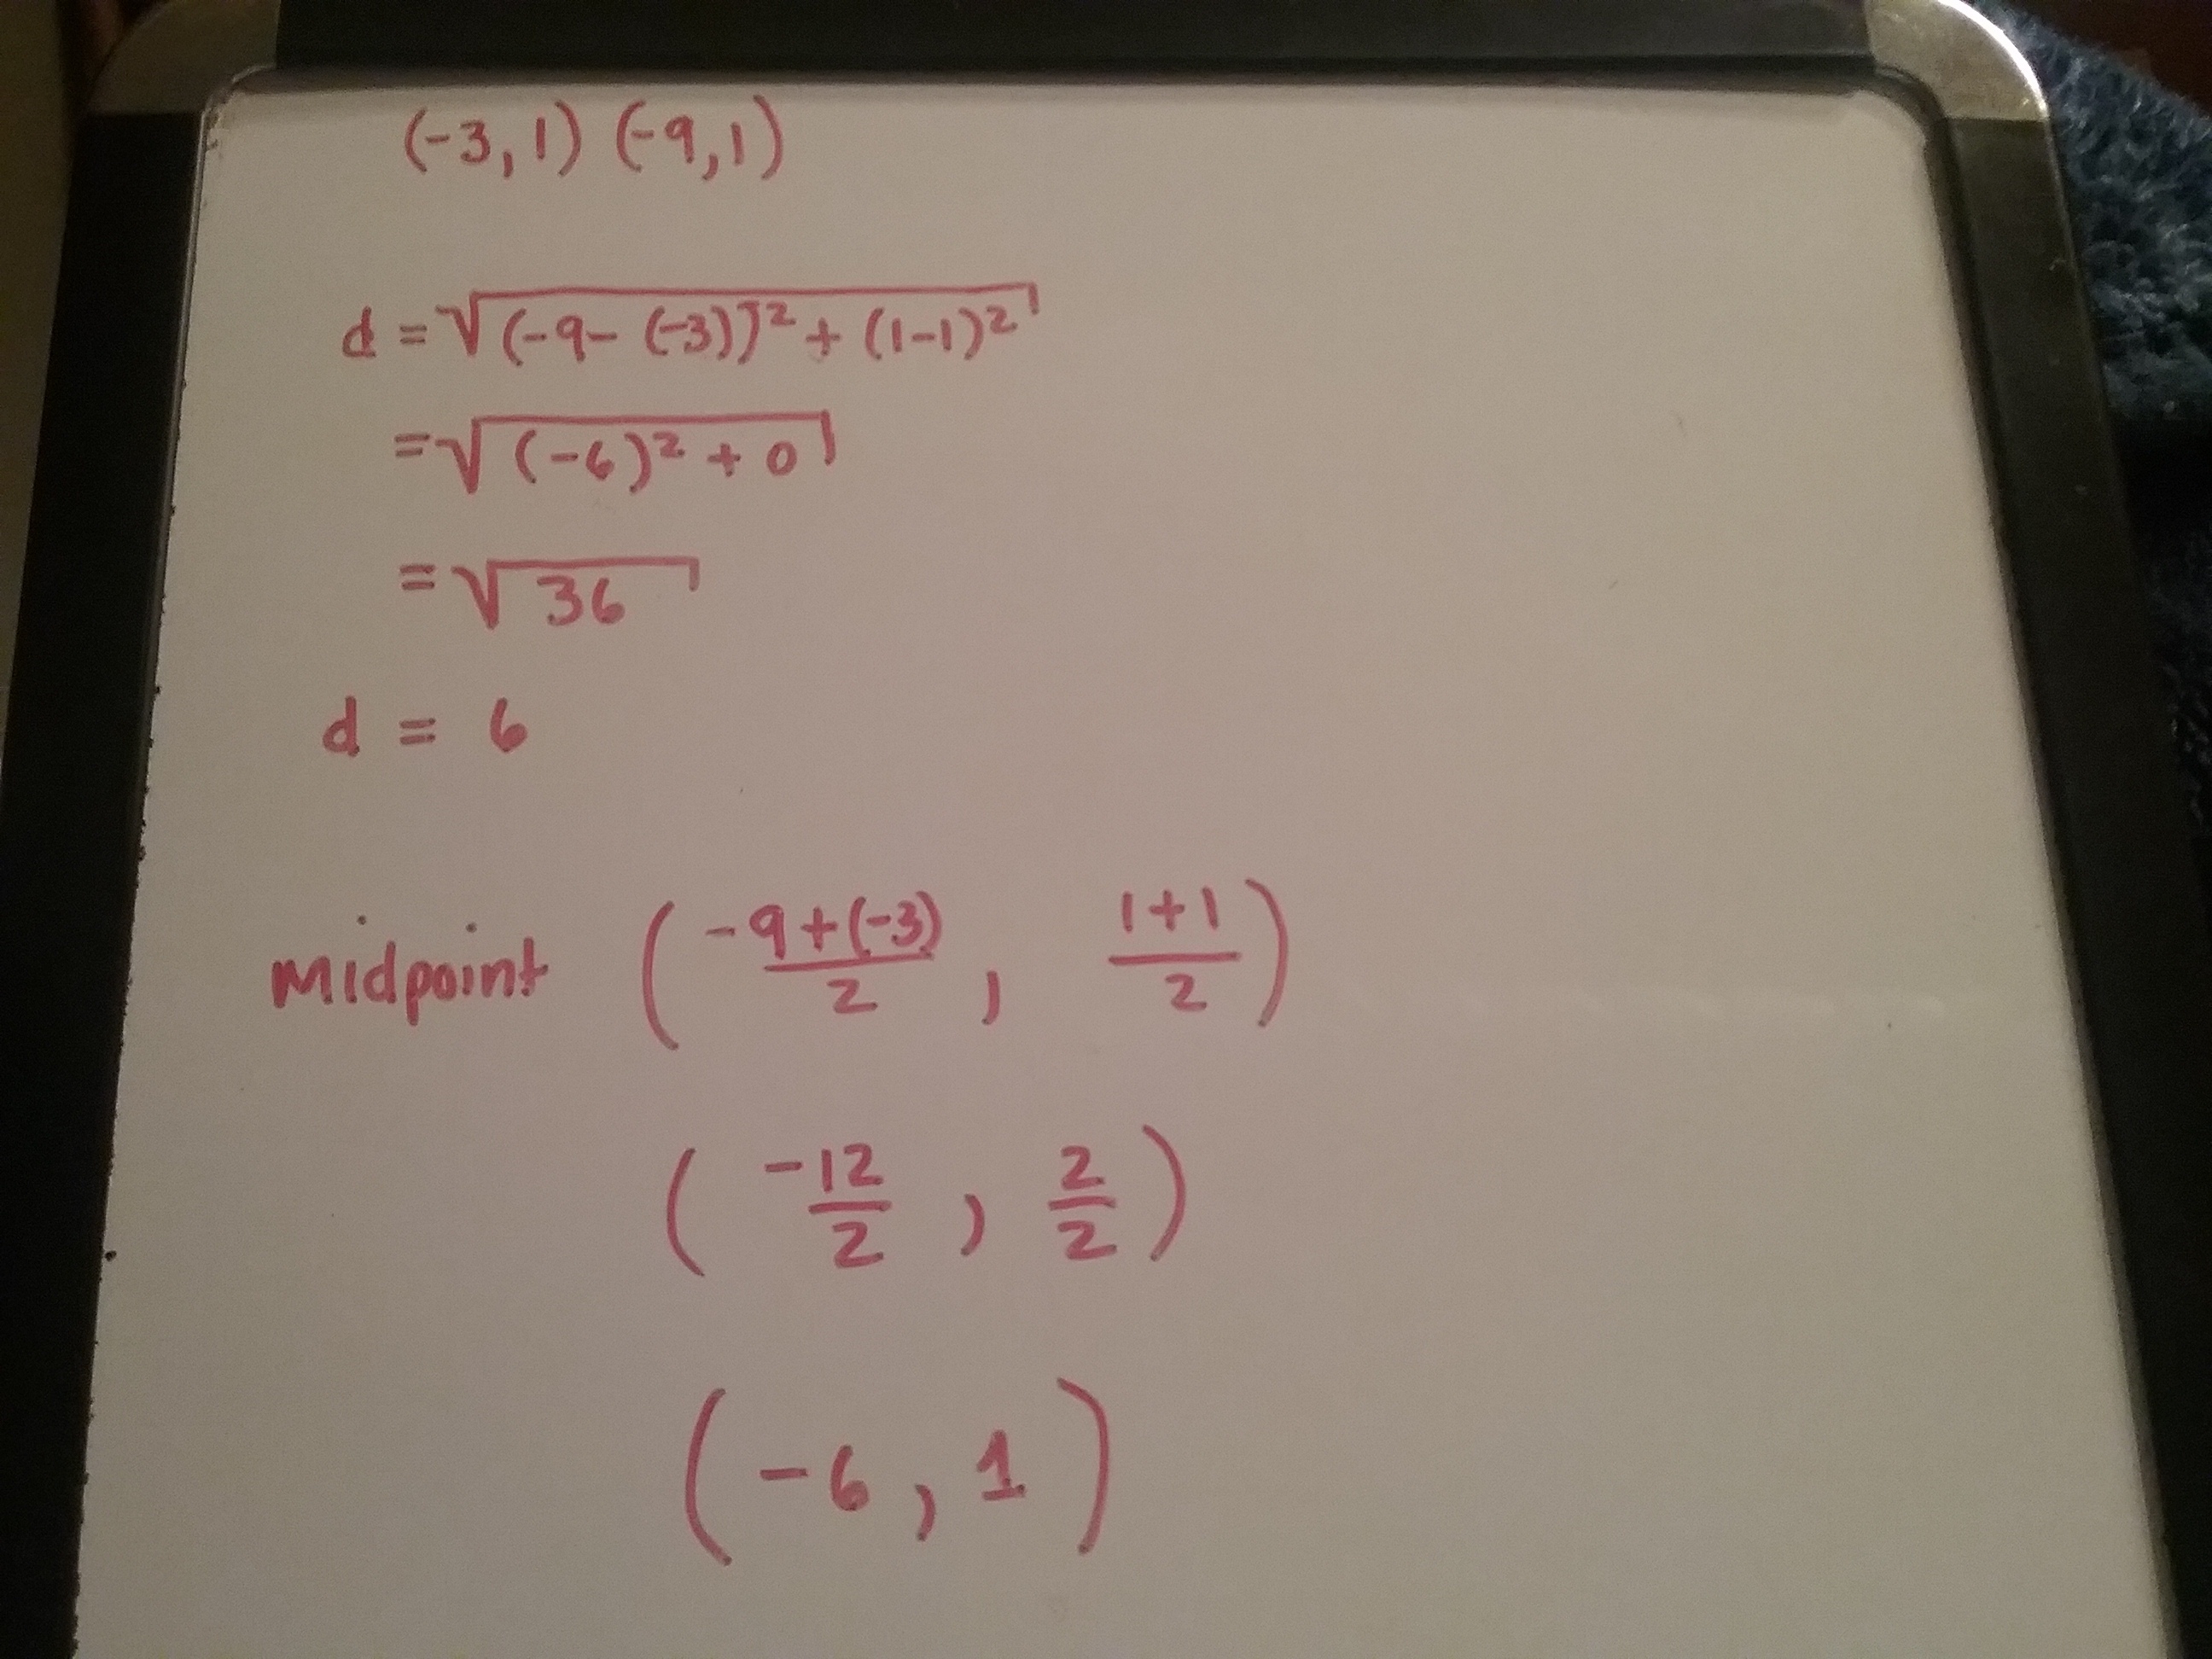 (-3,1) (-9,1)
d = √(-9-(-3))² + (1-1)²
= √(-6)² + 0
= √36
d = 6
midpoint (-9+(-3)/2, 1+1/2)
(-12/2, 2/2)
(-6, 1)